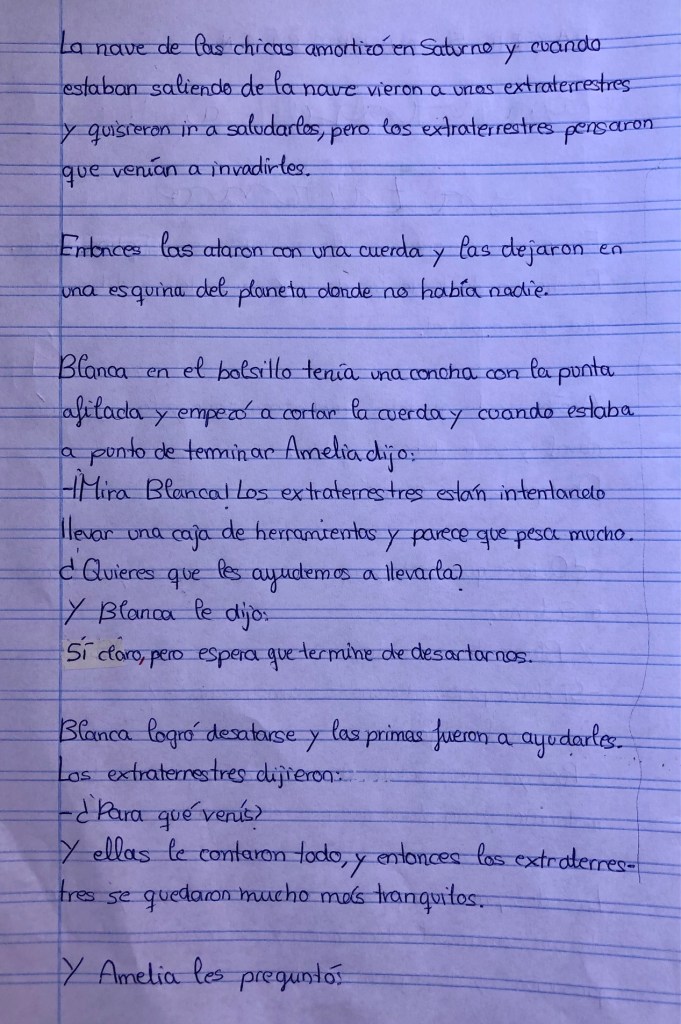 La nave de las chicas amortizó en Saturno y cuando
estaban saliendo de la nave vieron a unos extraterrestres
y quisieron ir a saludarlos, pero los extraterrestres pensaron
que venían a invadirles.
Entonces las ataron con una cuerda y las dejaron en
una esquina del planeta donde no había nadie.
Blanca en el bolsillo tenía una concha con la punta
afilada y empezó a cortar la cuerda y cuando estaba
a punto de terminar Amelia dijo:
-¡Mira Blanca! Los extraterrestres están intentando
llevar una caja de herramientas y parece que pesa mucho.
¿Quieres que les ayudemos a llevarla?
Y Blanca le dijo:
Sí claro, pero espera que termine de desartarnos.
Blanca logró desatarse y las primas fueron a ayudarles.
Los extraterrestres dijieron:
-¿Para qué venís?
Y ellas le contaron todo, y entonces los extraterres-
tres se quedaron mucho más tranquilos.
Y Amelia les preguntó: